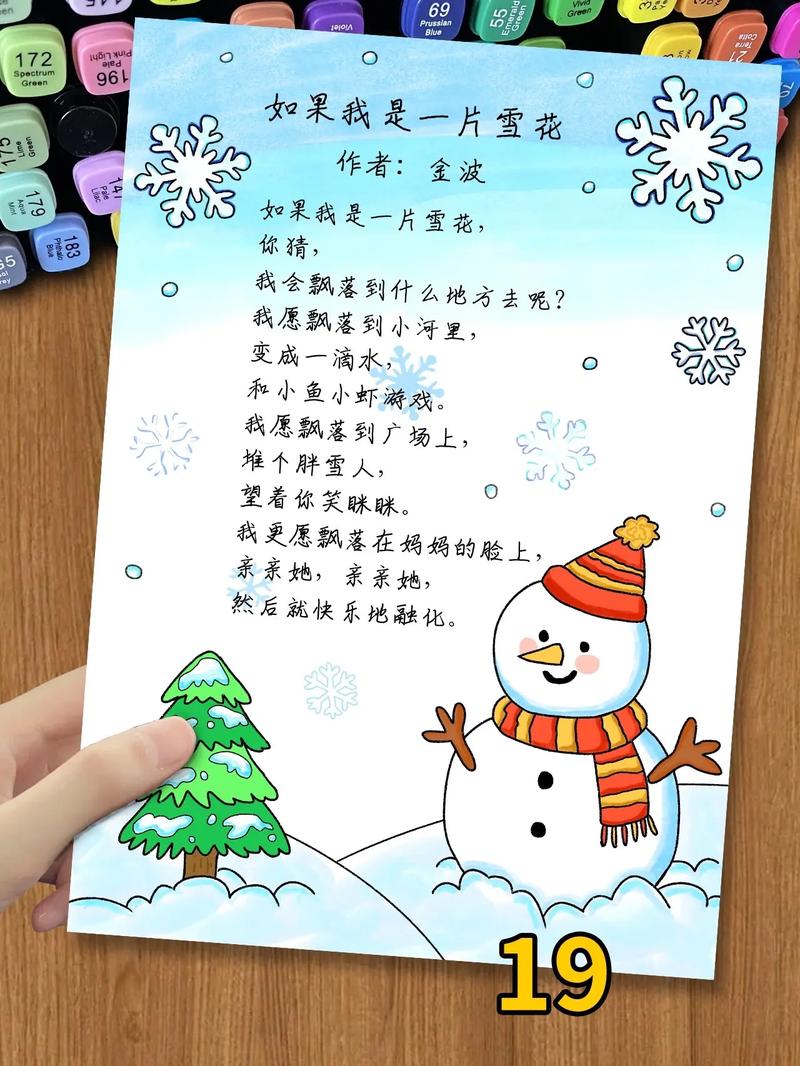 172
Spectrum
Green
196
Pale
Pink Light
Violet
69
Prussian
Blue
55
Emerald
Green
Vivid
Green
Terra
Cotta
21
70
175
Lime
Green
179
Aqua
Mint
147
Pale
Lilac
183
Phthalo
Blue
如果我是一片雪花
作者：金波
如果我是一片雪花，
你猜，
我会飘落到什么地方去呢？
我愿飘落到小河里，
变成一滴水，
和小鱼小虾游戏。
我愿飘落到广场上，
堆个胖雪人，
望着你笑眯眯。
我更愿飘落在妈妈的脸上，
亲亲她，亲亲她，
然后就快乐地融化。
19